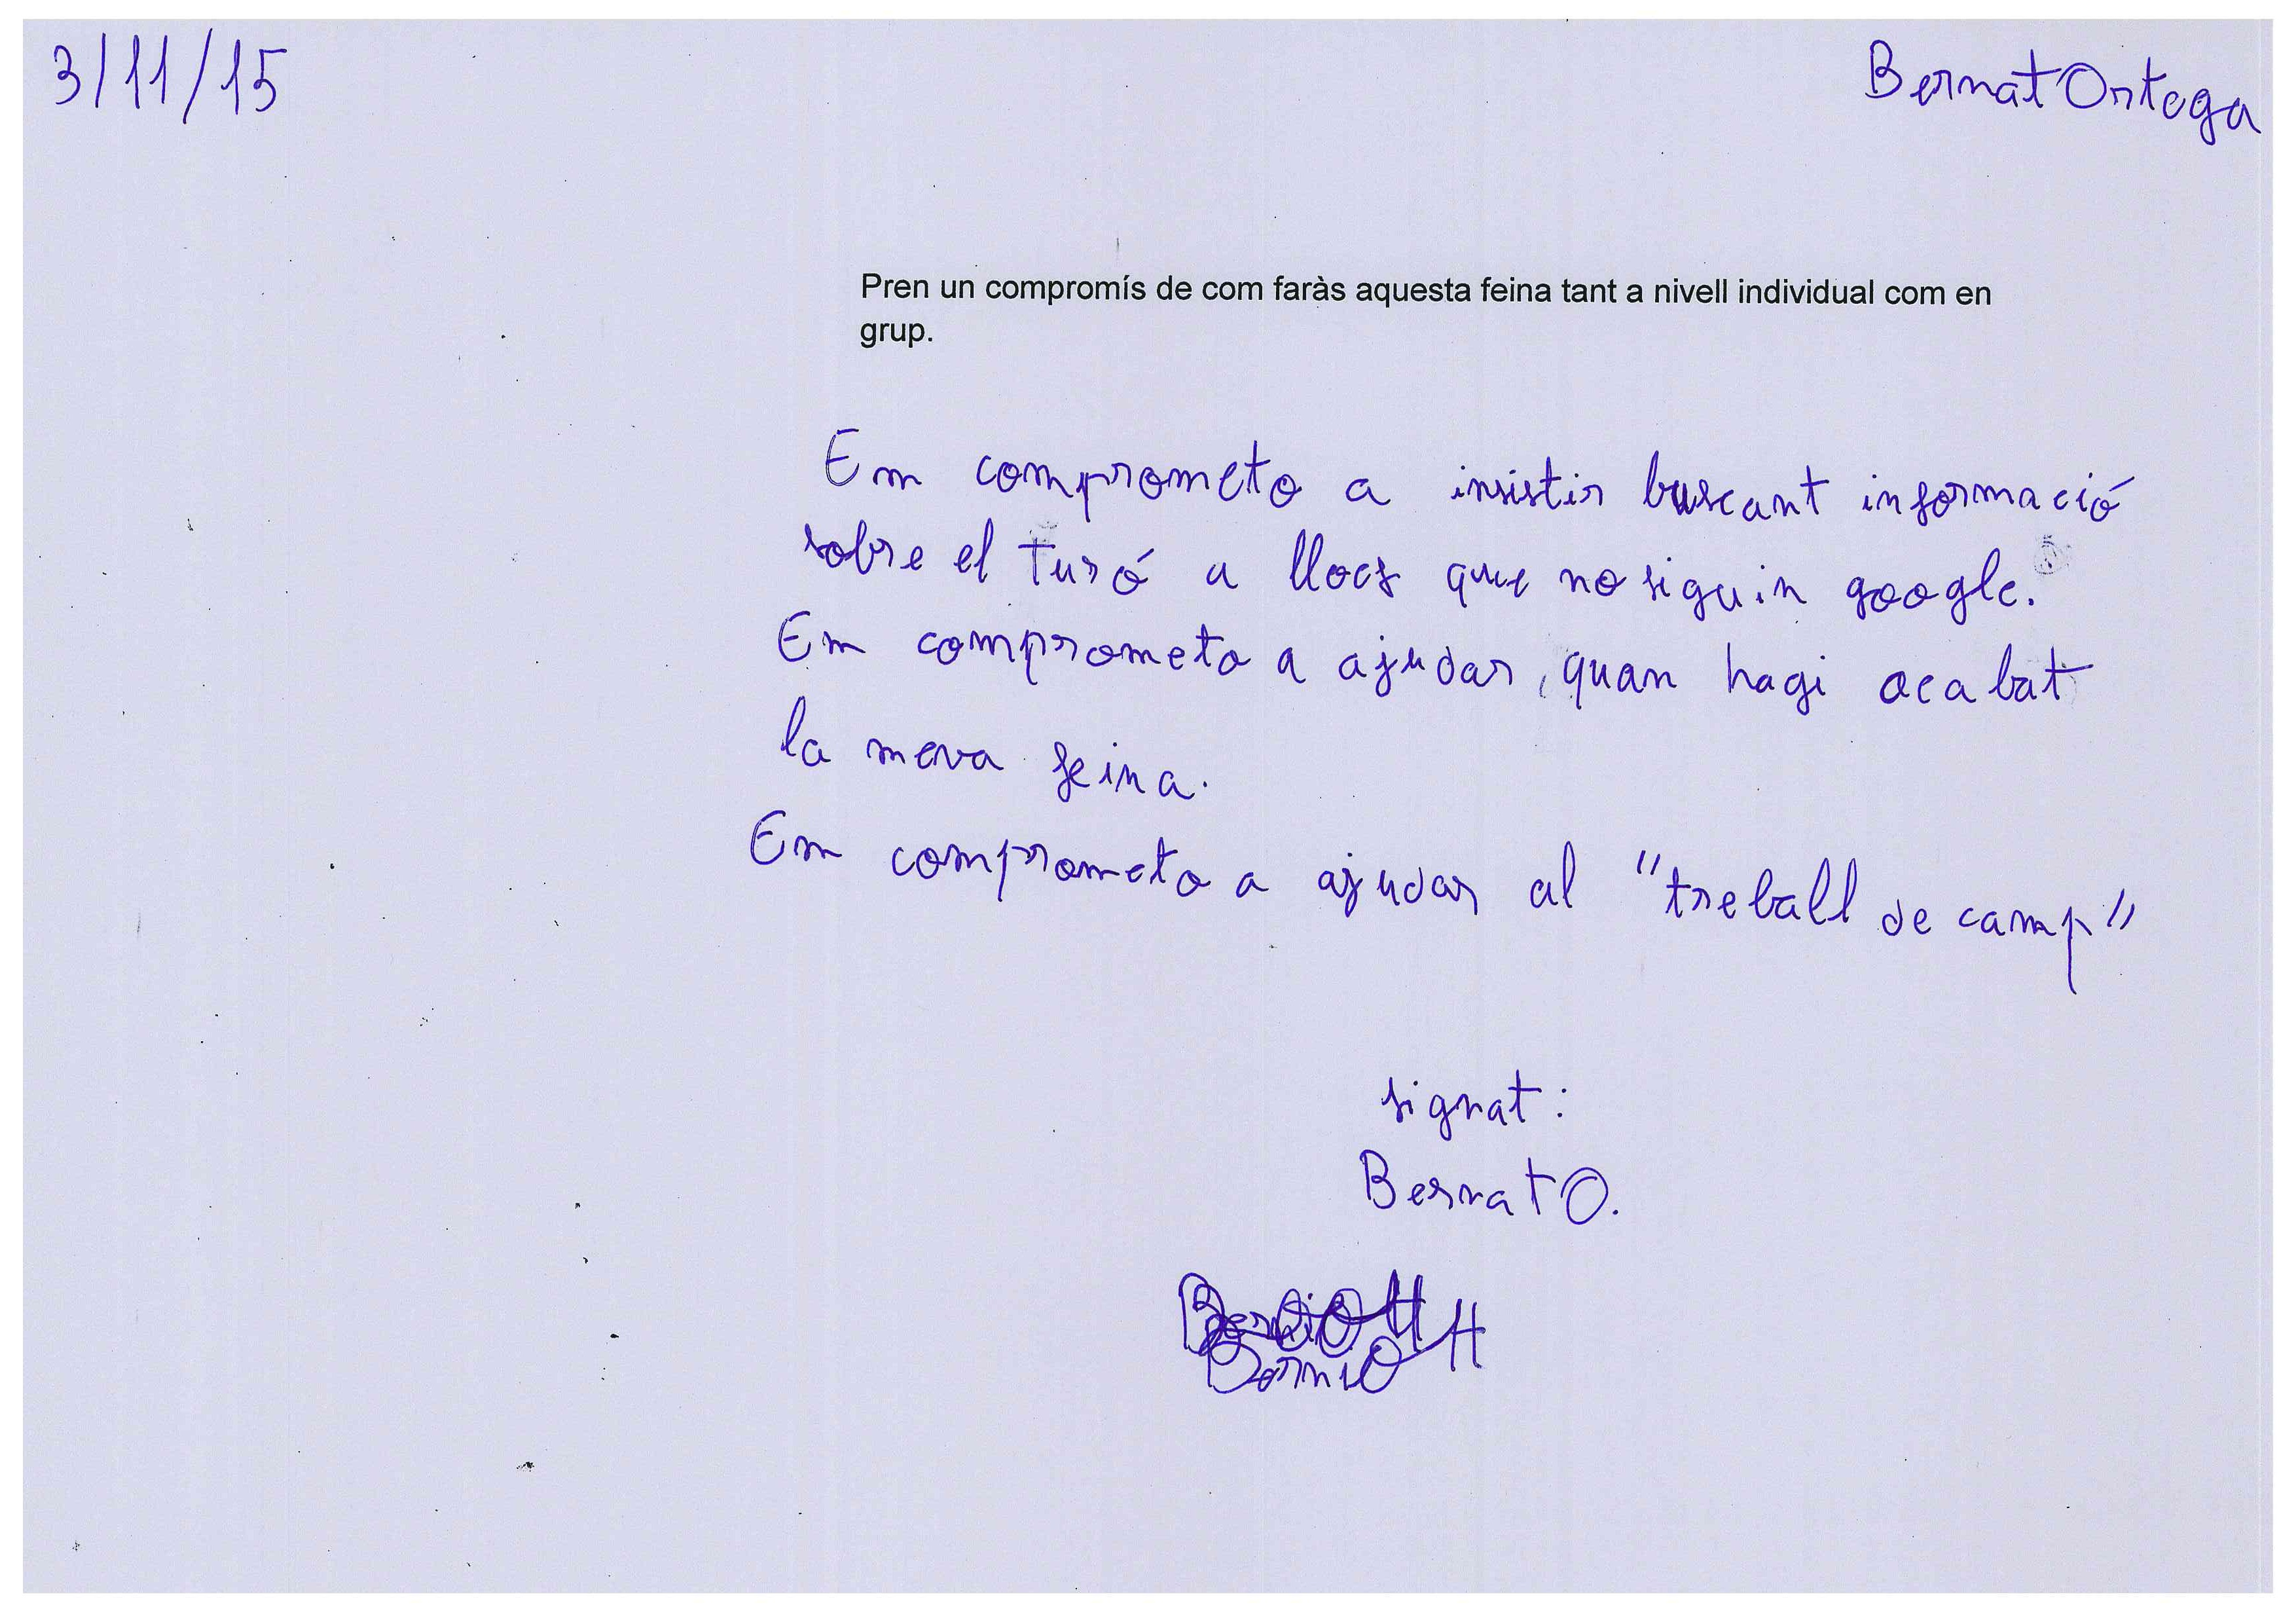 3/11/15
Bernat Ortega
Pren un compromís de com faràs aquesta feina tant a nivell individual com en
grup.
Em comprometo a insistir buscant informació
sobre el Turó a llocs que no siguin google.
Em comprometo a ajudar, quan hagi acabat
la meva feina.
Em comprometo a ajudar al "treball de camp"
signat:
Bernat O.